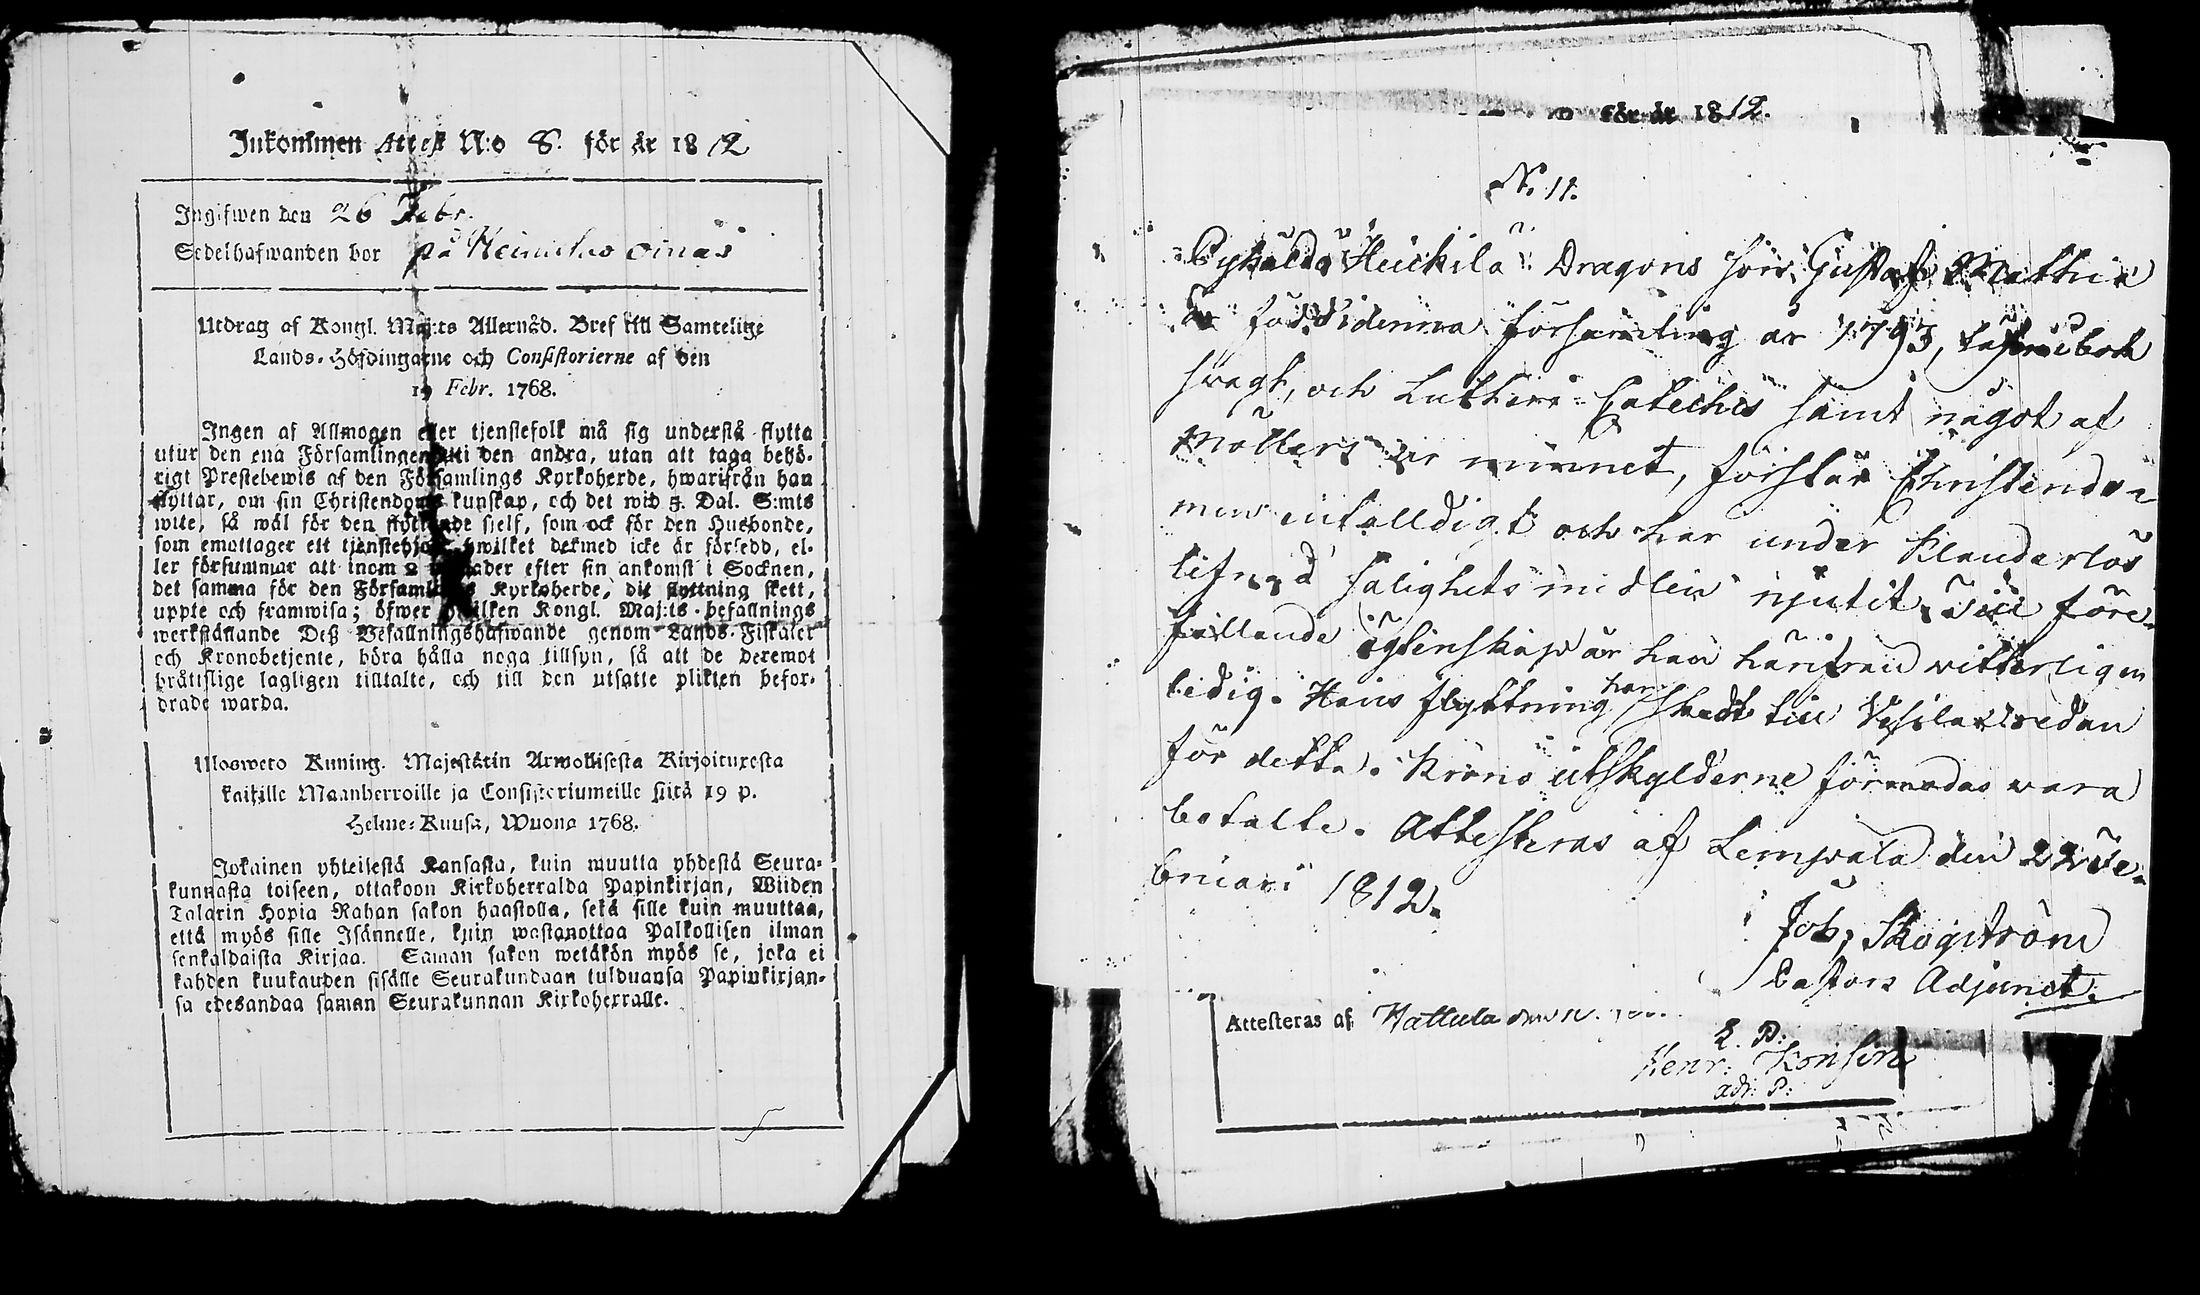 Inkommen Attest N:o 8. för år 1812
Ingifwen den 26 Febr.
Sedelhafwanden bor på Heinuswo oinas
Utdrag af Kongl. Maj:ts Allernåd. Bref till Samtelige
Lands-Höfdingarne och Consistorierne af den
19 Febr. 1768.
Ingen af Allmogen eller tjenstefolk må sig understå flytta
utur den ena Församlingen uti den andra, utan att taga behö-
rigt Prestebewis af den Församlings Kyrkoherde, hwarifrån han
flyttar, om sin Christendoms kunskap, och det wid 5. Dal. S:mts
wite, så wäl för den flyttande sjelf, som ock för den Husbonde,
som emottager ett tjenstehjon, hwilket dermed icke är försedd, el-
ler försummar att inom 2 månader efter sin ankomst i Socknen,
det samma för den Församlings Kyrkoherde, dit flyttning skett,
uppte och framwisa; öfwer hwilken Kongl. Maj:ts befallnings
werkställande Deß Befallningshafwande genom Lands-Fiskaler
och Kronobetjente, böra hålla noga tillsyn, så att de deremot
brättslige lagligen tilltalte, och till den utsatte plikten befor-
drade warda.
Ulosweto Kuning. Majestätin Armollisesta Kirjoituxesta
kaikille Maanherroille ja Consistoriumeille siitä 19 p.
Helme-Kuusa, Wuona 1768.
Jokainen yhteisestä Kansasta, kuin muutta yhdestä Seura-
kunnasta toiseen, ottakoon Kirkoherralda Papinkirjan, Wiiden
Talarin Hopia Rahan sakon haastolla, sekä sille kuin muuttaa,
että myös sille Isännelle, kuin wastanottaa Palkollisen ilman
senkaldaista Kirjaa. Saman sakon wetäkön myös se, joka ei
kahden kuukauden sisälle Seurakundaan tulduansa Papinkirjan-
sa edesandaa saman Seurakunnan Kirkoherralle.
för år 1812.
N. 11.
Heickilä Dragons son Gustaf Matthie
född i denna församling år 1793, läser i bok
swagt, och Lutheri Cateches samt något af
Möllers ur minnet, förstår Christendo-
men enfalldigt och har under klanderlös
lefnad salighets medlen njutit. Till före-
fallande ägtenskap är han härifrån witterligen
ledig. Hans flyttning har skedt till Vesilax redan
för detta. Krono utskylderne förmodas vara
betalte. Attesteras af Lempala den 22 Fe-
bruari 1812.
Joh. Skogström
Pastors Adjunct.
Attesteras af Hattula den
L. P:
Henr: Konsin
adj. P: